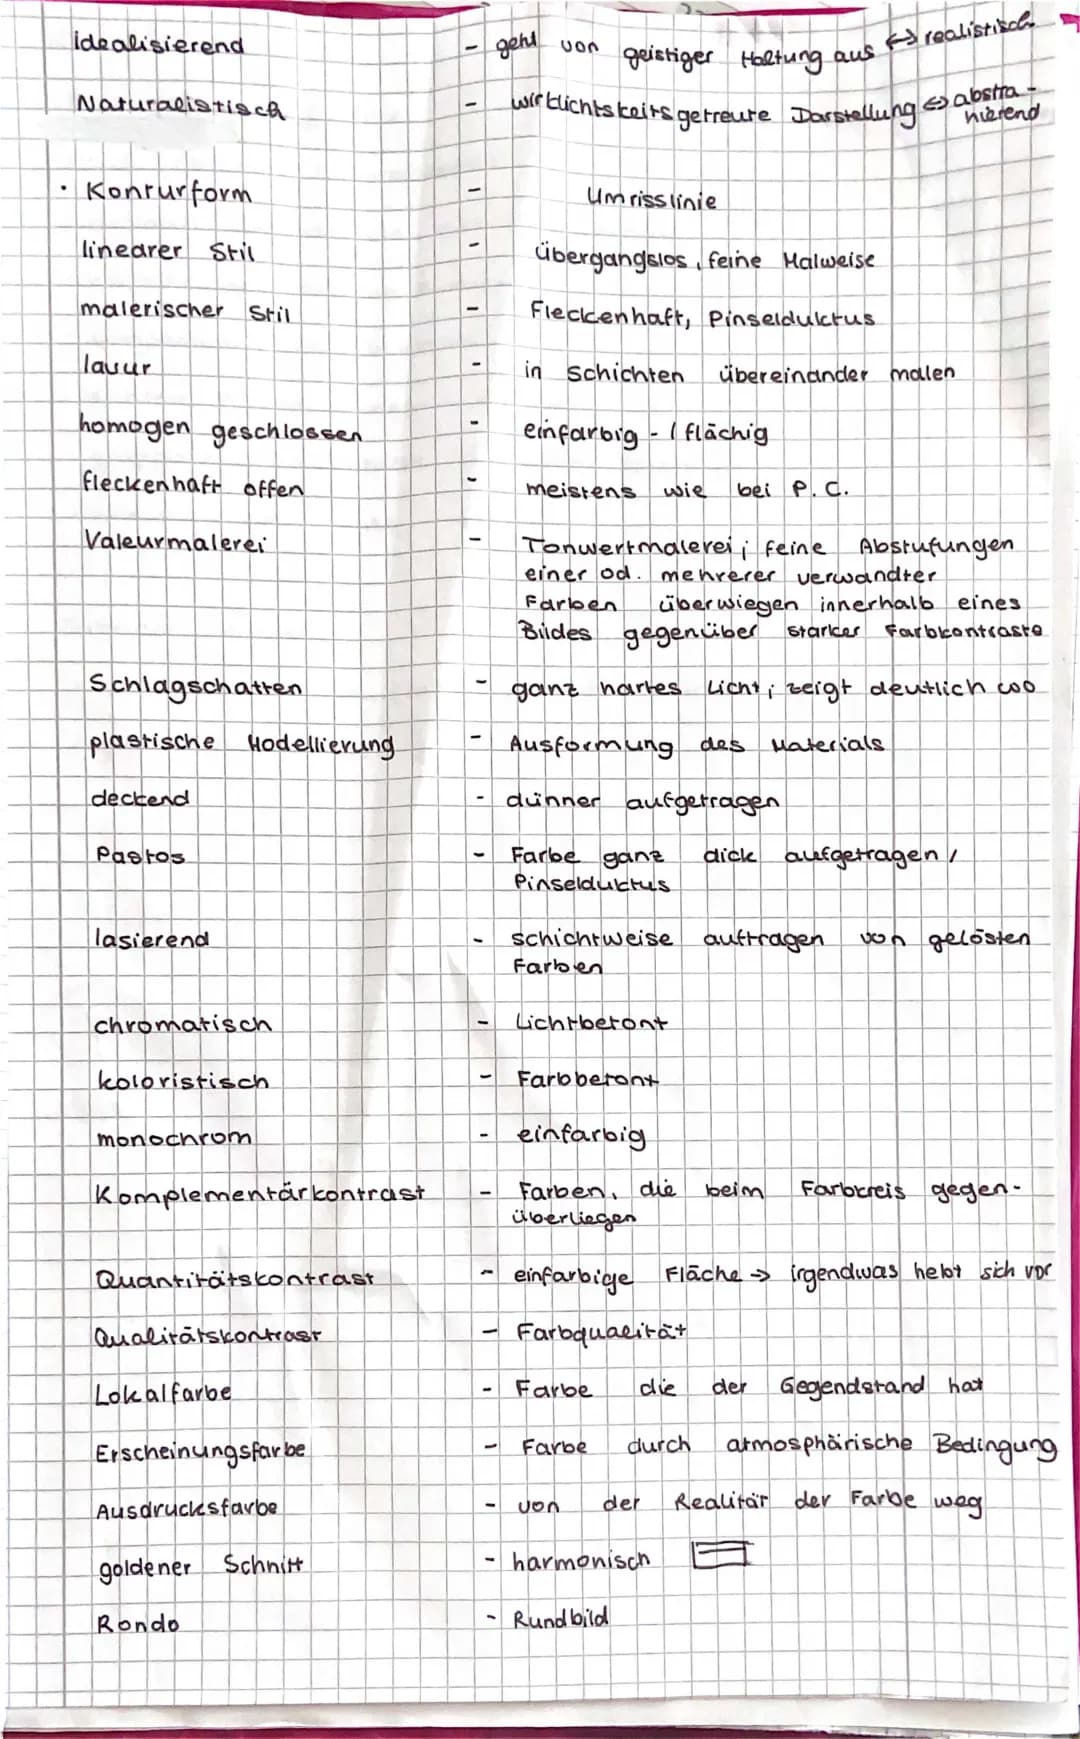 idealisierend - geht von geistiger Haltung aus ↔ realistisch
Naturalistisch - wirklichtskeitsgetreute Darstellung ⇔ abstra-
hierend
· Konturform - Umrisslinie
linearer Stil - übergangslos, feine Malweise
malerischer Stil - Fleckenhaft, Pinselduktus
lavur - in Schichten übereinander malen
homogen geschlossen - einfarbig - / flächig
fleckenhaft offen - meistens wie bei P. C.
Valeurmalerei - Tonwertmalerei; feine Abstufungen
einer od. mehrerer verwandter
Farben überwiegen innerhalb eines
Bildes gegenüber starker Farbkontraste
Schlagschatten - ganz hartes Licht; zeigt deutlich wo
plastische Modellierung - Ausformung des Materials
deckend - dünner aufgetragen
Pastos - Farbe ganz dick aufgetragen /
Pinselduktus
lasierend - schichtweise auftragen von gelösten
Farben
chromatisch - Lichtbetont
koloristisch - Farbbetont
monochrom - einfarbig
Komplementärkontrast - Farben, die beim Farbkreis gegen-
überliegen
Quantitätskontrast - einfarbige Fläche → irgendwas hebt sich vor
Qualitätskontrast - Farbqualität
Lokalfarbe - Farbe die der Gegendstand hat
Erscheinungsfarbe - Farbe durch atmosphärische Bedingung
Ausdrucksfarbe - von der Realität der Farbe weg
goldener Schnitt - harmonisch
Rondo - Rundbild